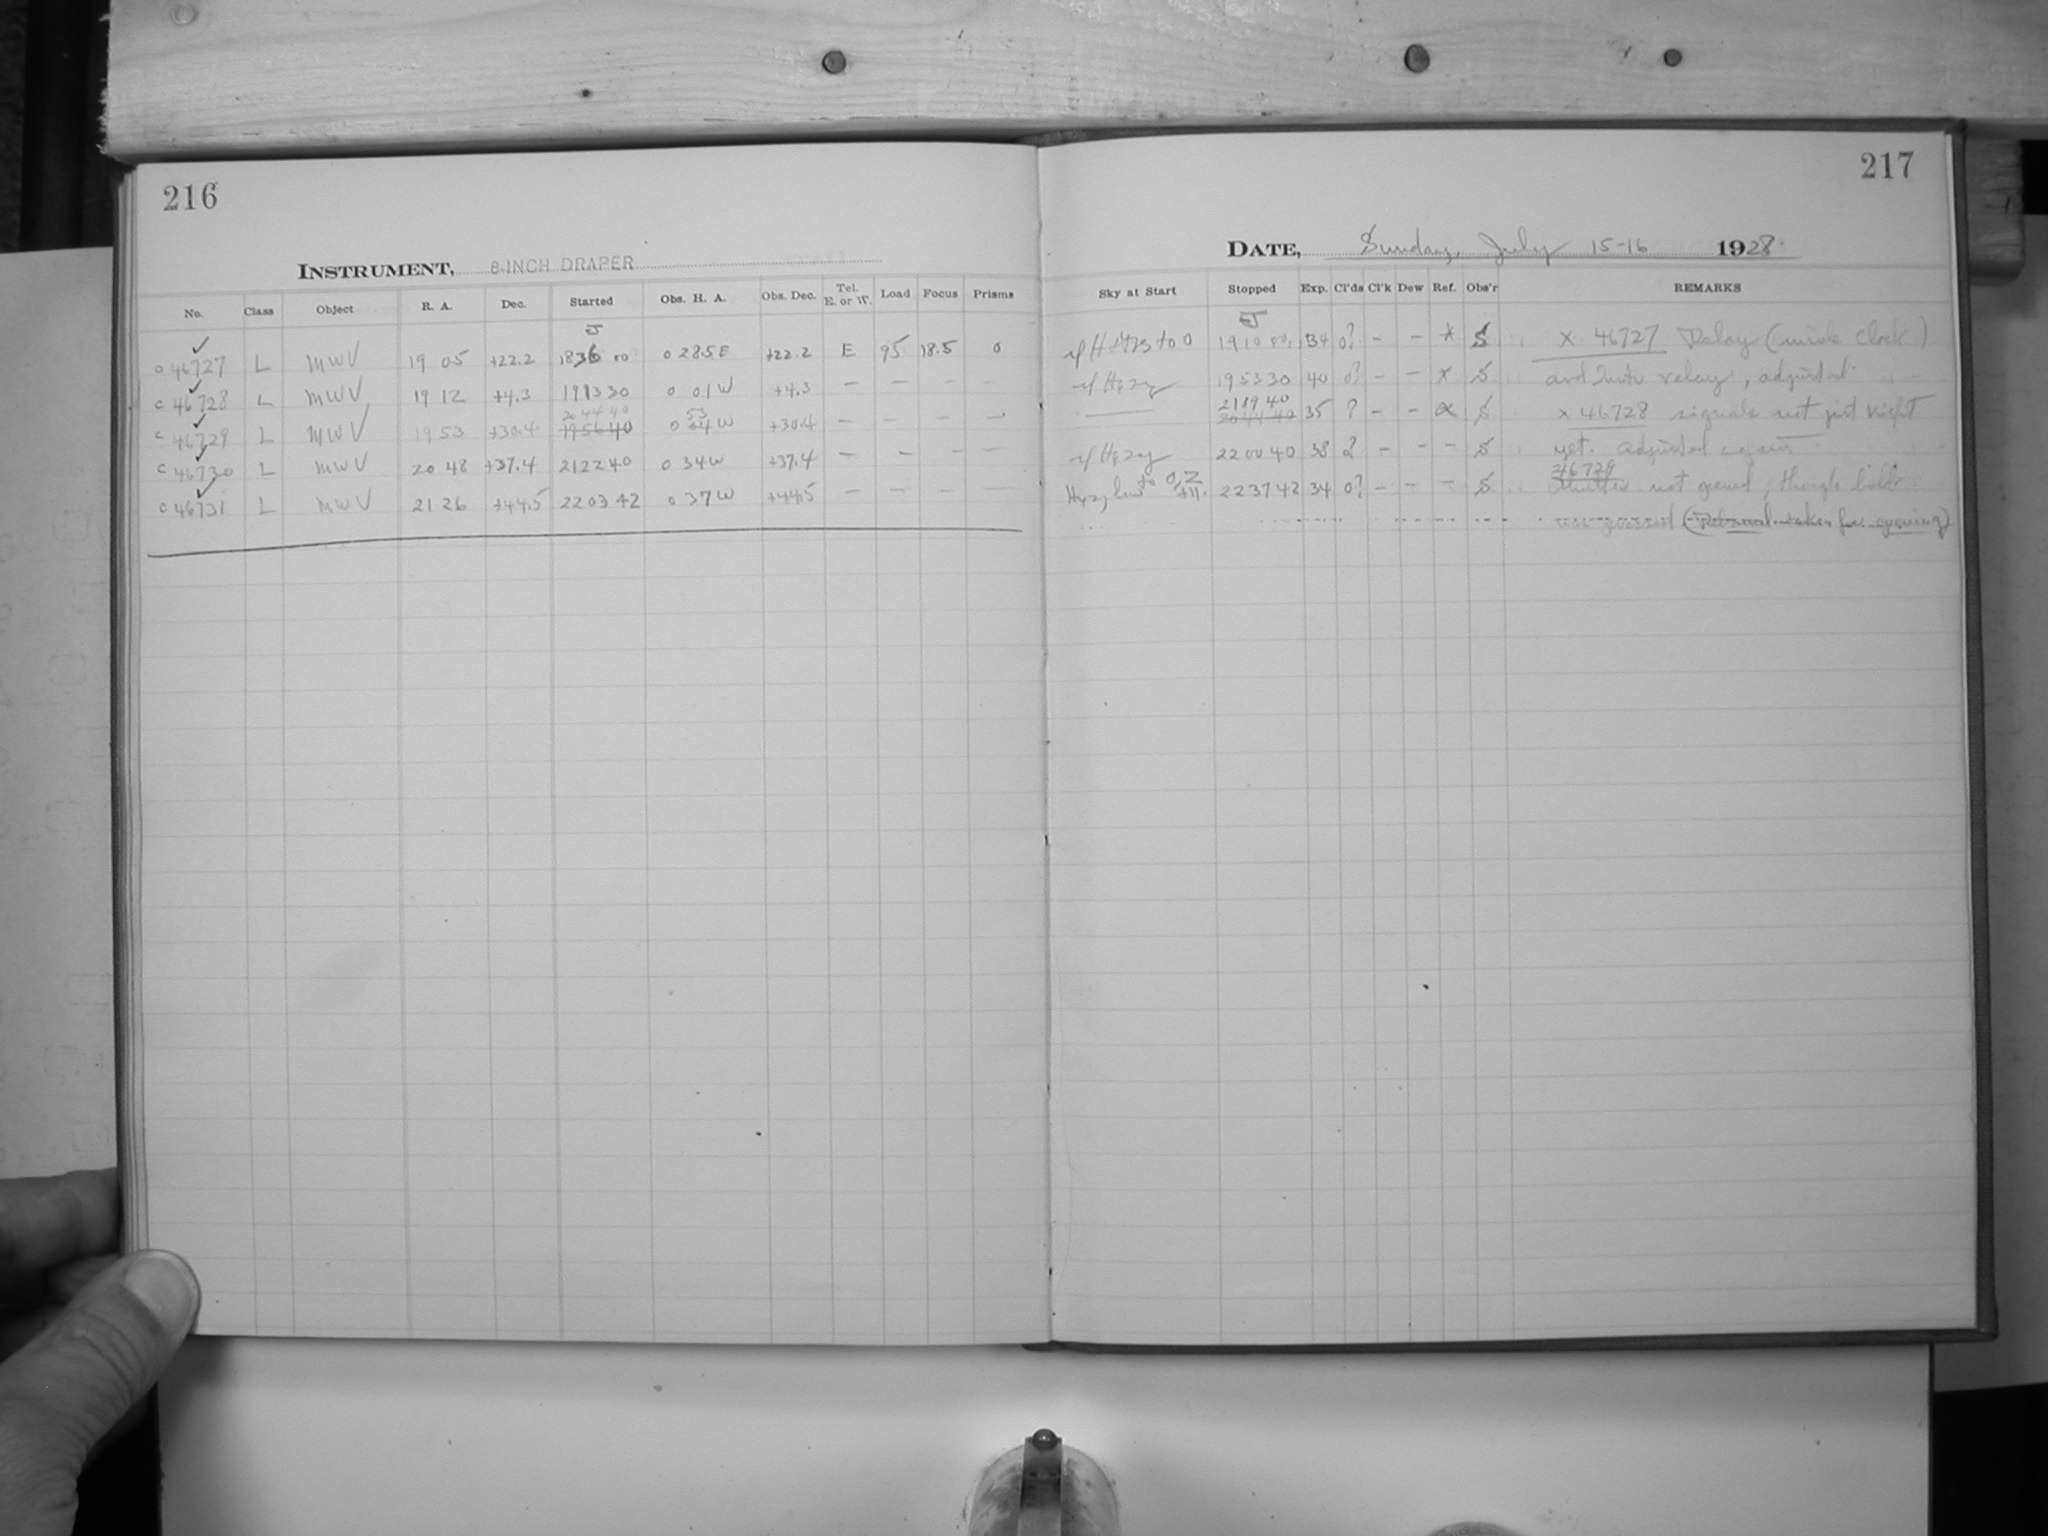 216
INSTRUMENT, 8 INCH DRAPER
No. Class Object R. A. Dec. Started Obs. H. A. Obs. Dec. Tel. E. or W. Load Focus Prisms
46727 L MWV 19 05 +22.2 1836 10 0 28.5 E +22.2 E 95 18.5 0
c 46728 L MWV 19 12 +4.3 191330 0 01 W +4.3 — — — —
20 44 40 53
c 46729 L MWV 19 53 +30.4 195640 0 W +30.4 — — — —
c 46730 L MWV 20 48 +37.4 212240 0 34 W +37.4 — — — —
c 46731 L MWV 21 26 +44.5 2203 42 0 37 W +44.5 — — — —
217
DATE, Sunday, July 15-16 1928.
Sky at Start Stopped Exp. Cl'ds Cl'k Dew Ref. Obs'r REMARKS
1910 34 0? – – S x 46727 Relay ( clock)
Hazy 195330 40 0? – – x S relay, adjusted.
2119 40
204440 35 ? – – S x 46728 signals not just right
Hazy 220040 38 – – – S yet. adjusted again.
46729
Hazy 223742 34 0? – – – S not opened, though
for opening)